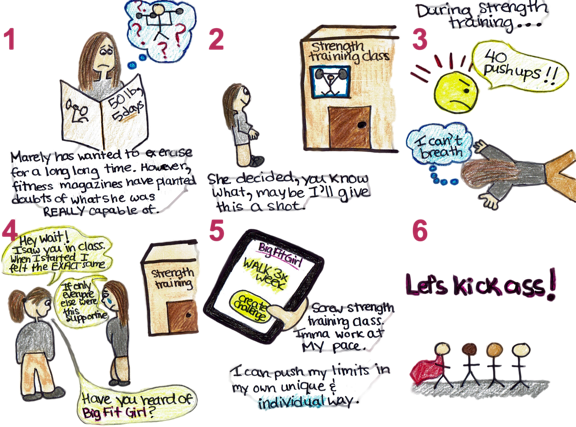 1
? ? ? ?
50 lbs
5 days
Marely has wanted to exercise
for a long long time. However,
fitness magazines have planted
doubts of what she was
REALLY capable of.
2
Strength
training class
She decided, you know
what, maybe I'll give
this a shot.
During strength
training...
3
40
pushups!!
I can't
breath
4
Hey wait!
I saw you in class.
When I started I
felt the EXACT same
If only
everyone
else were
this
supportive
Strength
training
Have you heard of
Big Fit Girl?
5
Big Fit Girl
WALK 3x
WEEK
Create
challenge
Screw strength
training class.
Imma work at
MY pace.
I can push my limits in
my own unique &
individual way.
6
Let's kick ass!